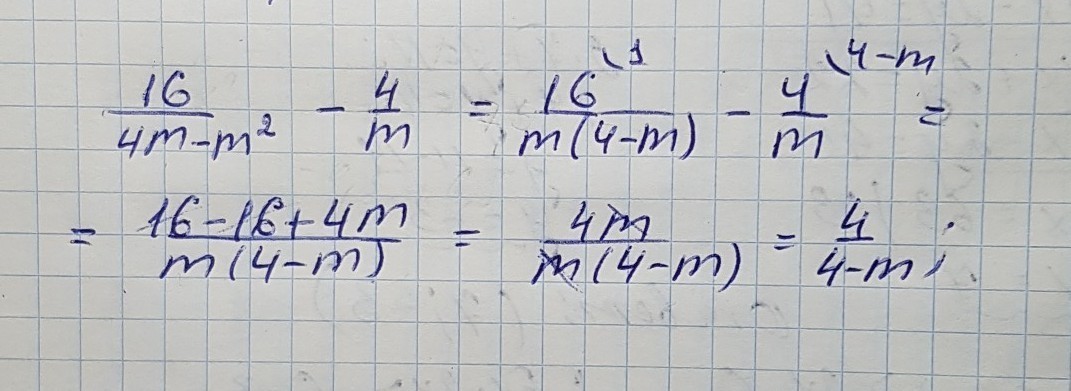 16/(4m-m²) - 4/m = 16\1/(m(4-m)) - 4\4-m/m =
= (16-16+4m)/(m(4-m)) = 4m/(m(4-m)) = 4/(4-m);